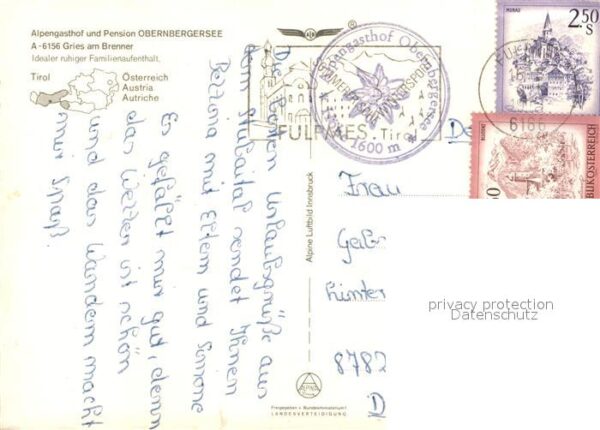 Alpengasthof und Pension OBERNBERGERSEE
A-6156 Gries am Brenner
Idealer ruhiger Familienaufenthalt.
Tirol
Österreich
Austria
Autriche
Die besten Urlaubsgrüße aus
dem Stubaital sendet Ihnen
Bettina mit Eltern und Simone
Es gefällt mir gut, denn
das Wetter ist schön
und das Wandern macht
mir Spaß.
Alpine Luftbild Innsbruck
ALPINE
Freigegeben v. Bundesministerium f.
LANDESVERTEIDIGUNG
Alpengasthof Obernbergersee
1600 m
FULPMES. Tirol
MURAU
2.50
S
6166
REPUBLIK ÖSTERREICH
Frau
Hinter
8782
D
privacy protection
Datenschutz